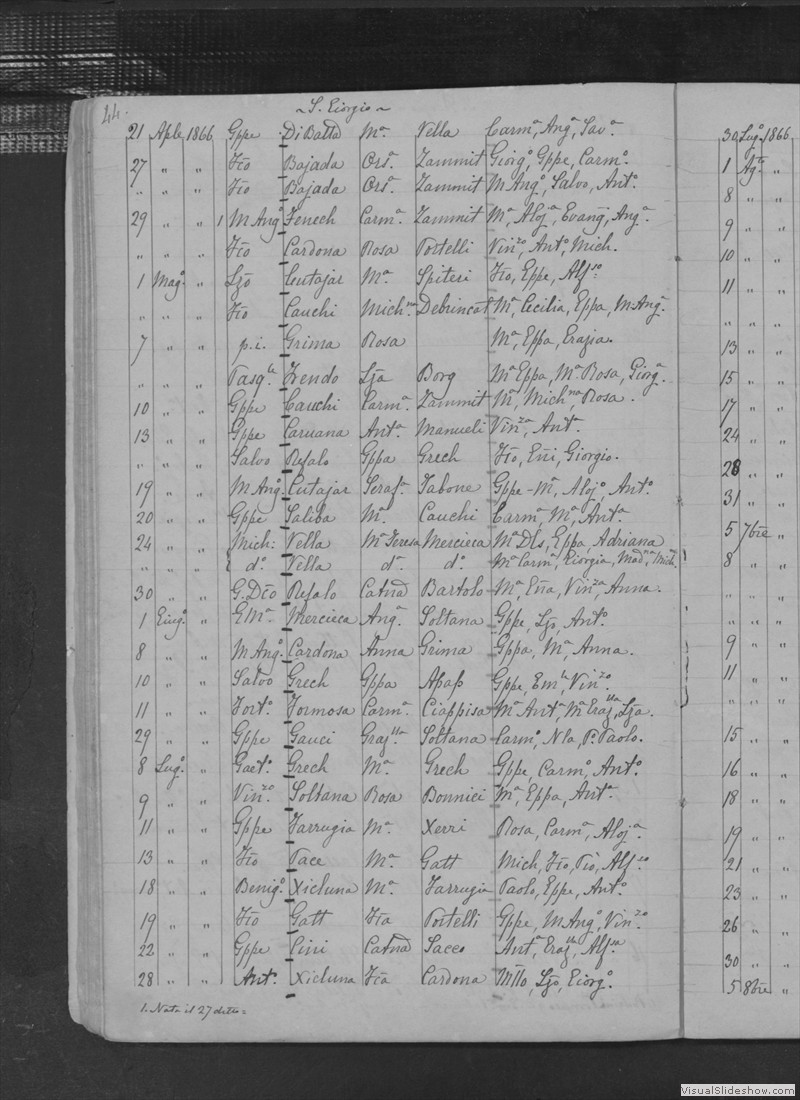 44.
~ S. Giorgio ~
21 Aple 1866 Gppe Di Battā Mª Vella Carmª, Angª, Savª.
27 " " Fc̄o Bajada Orsª Zammit Giorgº, Gppe, Carmº.
" " " Fc̄o Bajada Orsª Zammit M Angº, Salvo, Antº.
29 " " 1 M Angº Fenech Carmª Zammit Mª, Alojª, Evang, Angª.
" " " Fc̄o Cardona Rosa Portelli Vinzº, Antº, Mich.
1 Magº " Lz̄o Cutajar Mª Spiteri Fc̄o, Gppe, Alfso.
" " " Fc̄o Cauchi Michna Debrincat Mª, Cecilia, Gppa, M Angª.
7 " " p.i. Grima Rosa Mª, Gppa, Grazia.
" " " Pasqle Frendo Lz̄a Borg Mª Gppa, Mª Rosa, Giorgª.
10 " " Gppe Cauchi Carmª Zammit Mª, Michna, Rosa.
13 " " Gppe Caruana Antª Manueli Vinzª, Antª.
" " " Salvo Refalo Gppa Grech Fc̄o, Giorgio.
19 " " M Angº Cutajar Serafª Tabone Gppe - Mª, Alojº, Antº.
20 " " Gppe Saliba Mª Cauchi Carmª, Mª, Antª
24 " " Mich: Vella Mª Teresa Mercieca Mª Dls, Gppa, Adriana
" " " dº. Vella dª. dº. Mª Carmª, Giorgia, Madnª, Mich.
30 " " G. Dc̄o Refalo Catnā Bartolo Mª, Vinzª, Anna.
1 Giugº " Emª. Mercieca Angª Soltana Gppe, Lz̄o, Antº.
8 " " M Angº. Cardona Anna Grima Gppa, Mª, Anna.
10 " " Salvo Grech Gppa Apap Gppe, Emle, Vinzº.
11 " " Fortº. Formosa Carmª. Ciappisa Mª Antª, Mª Grazlla, Lz̄a.
29 " " Gppe Gauci Grazlla Soltana Carmº, Nla, P. Paolo.
8 Lugº. " Gaetº. Grech Mª. Grech Gppe, Carmº, Antº.
9 " " Vinzº. Soltana Rosa Bonnici Mª, Gppa, Antª.
11 " " Gppe Farrugia Mª. Xerri Rosa, Carmª, Alojª.
13 " " Fc̄o Pace Mª. Gatt Mich, Fc̄o, Pio, Alfso
18 " " Benigº. Xicluna Mª. Farrugia Paolo, Gppe, Antº.
19 " " Fc̄o Gatt Fc̄a Portelli Gppe, M Angº, Vinzº
22 " " Gppe Cini Catnā Sacco Antª, Grazlla, Alfsa
28 " " Antº. Xicluna Fc̄a Cardona Lz̄o, Giorgº.
1. Nata il 27 detto =
30 Lugº. 1866
1 Agto "
8 " "
9 " "
10 " "
11 " "
" " "
13 " "
15 " "
17 " "
24 " "
28 " "
31 " "
5 7bre "
8 " "
" " "
" " "
9 " "
11 " "
" " "
15 " "
16 " "
18 " "
19 " "
21 " "
23 " "
26 " "
30 " "
5 8bre "
VisualSlideshow.com